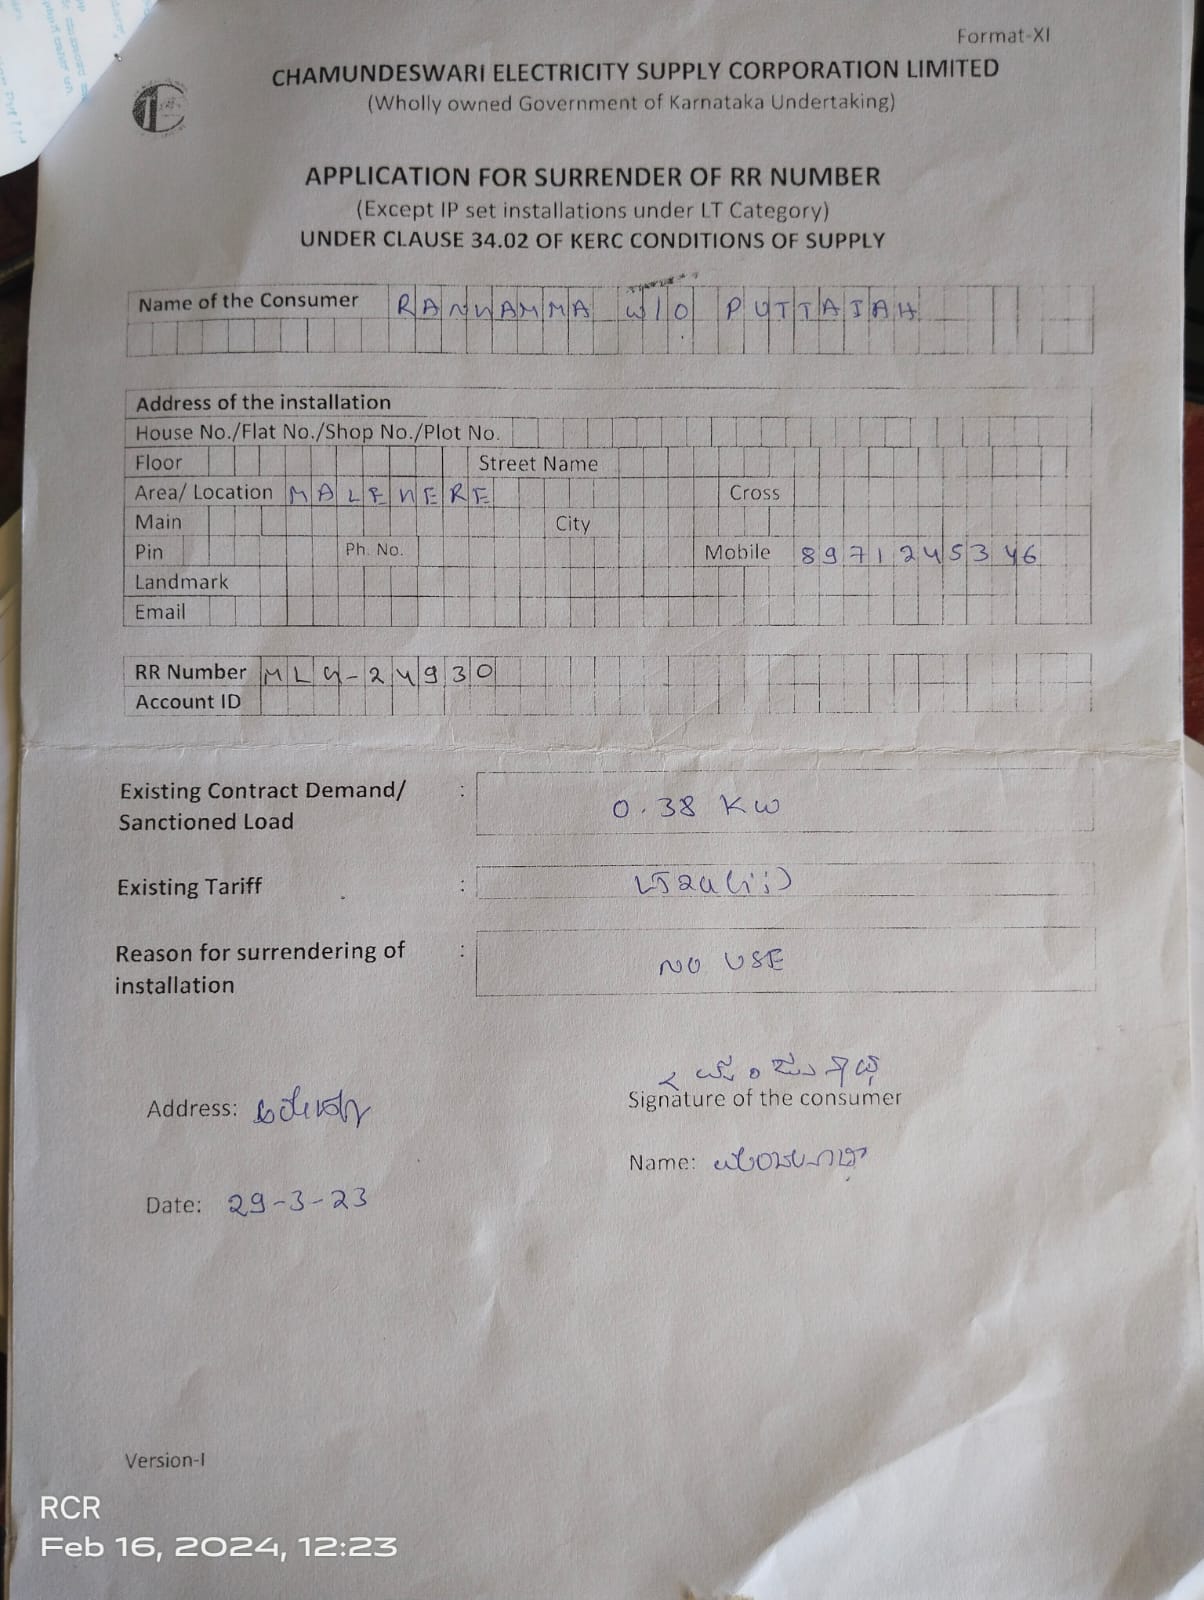 Format-XI
CHAMUNDESWARI ELECTRICITY SUPPLY CORPORATION LIMITED
(Wholly owned Government of Karnataka Undertaking)
APPLICATION FOR SURRENDER OF RR NUMBER
(Except IP set installations under LT Category)
UNDER CLAUSE 34.02 OF KERC CONDITIONS OF SUPPLY
Name of the Consumer W/O PUTTAIAH
Address of the installation
House No./Flat No./Shop No./Plot No.
Floor Street Name
Area/ Location MALEKERE Cross
Main City
Pin Ph. No. Mobile 8971245346
Landmark
Email
RR Number MLG-24930
Account ID
Existing Contract Demand/ : 0.38 KW
Sanctioned Load
Existing Tariff : LT2a(ii)
Reason for surrendering of : NO USE
installation
Signature of the consumer
Address:
Name:
Date: 29-3-23
Version-I
RCR
Feb 16, 2024, 12:23